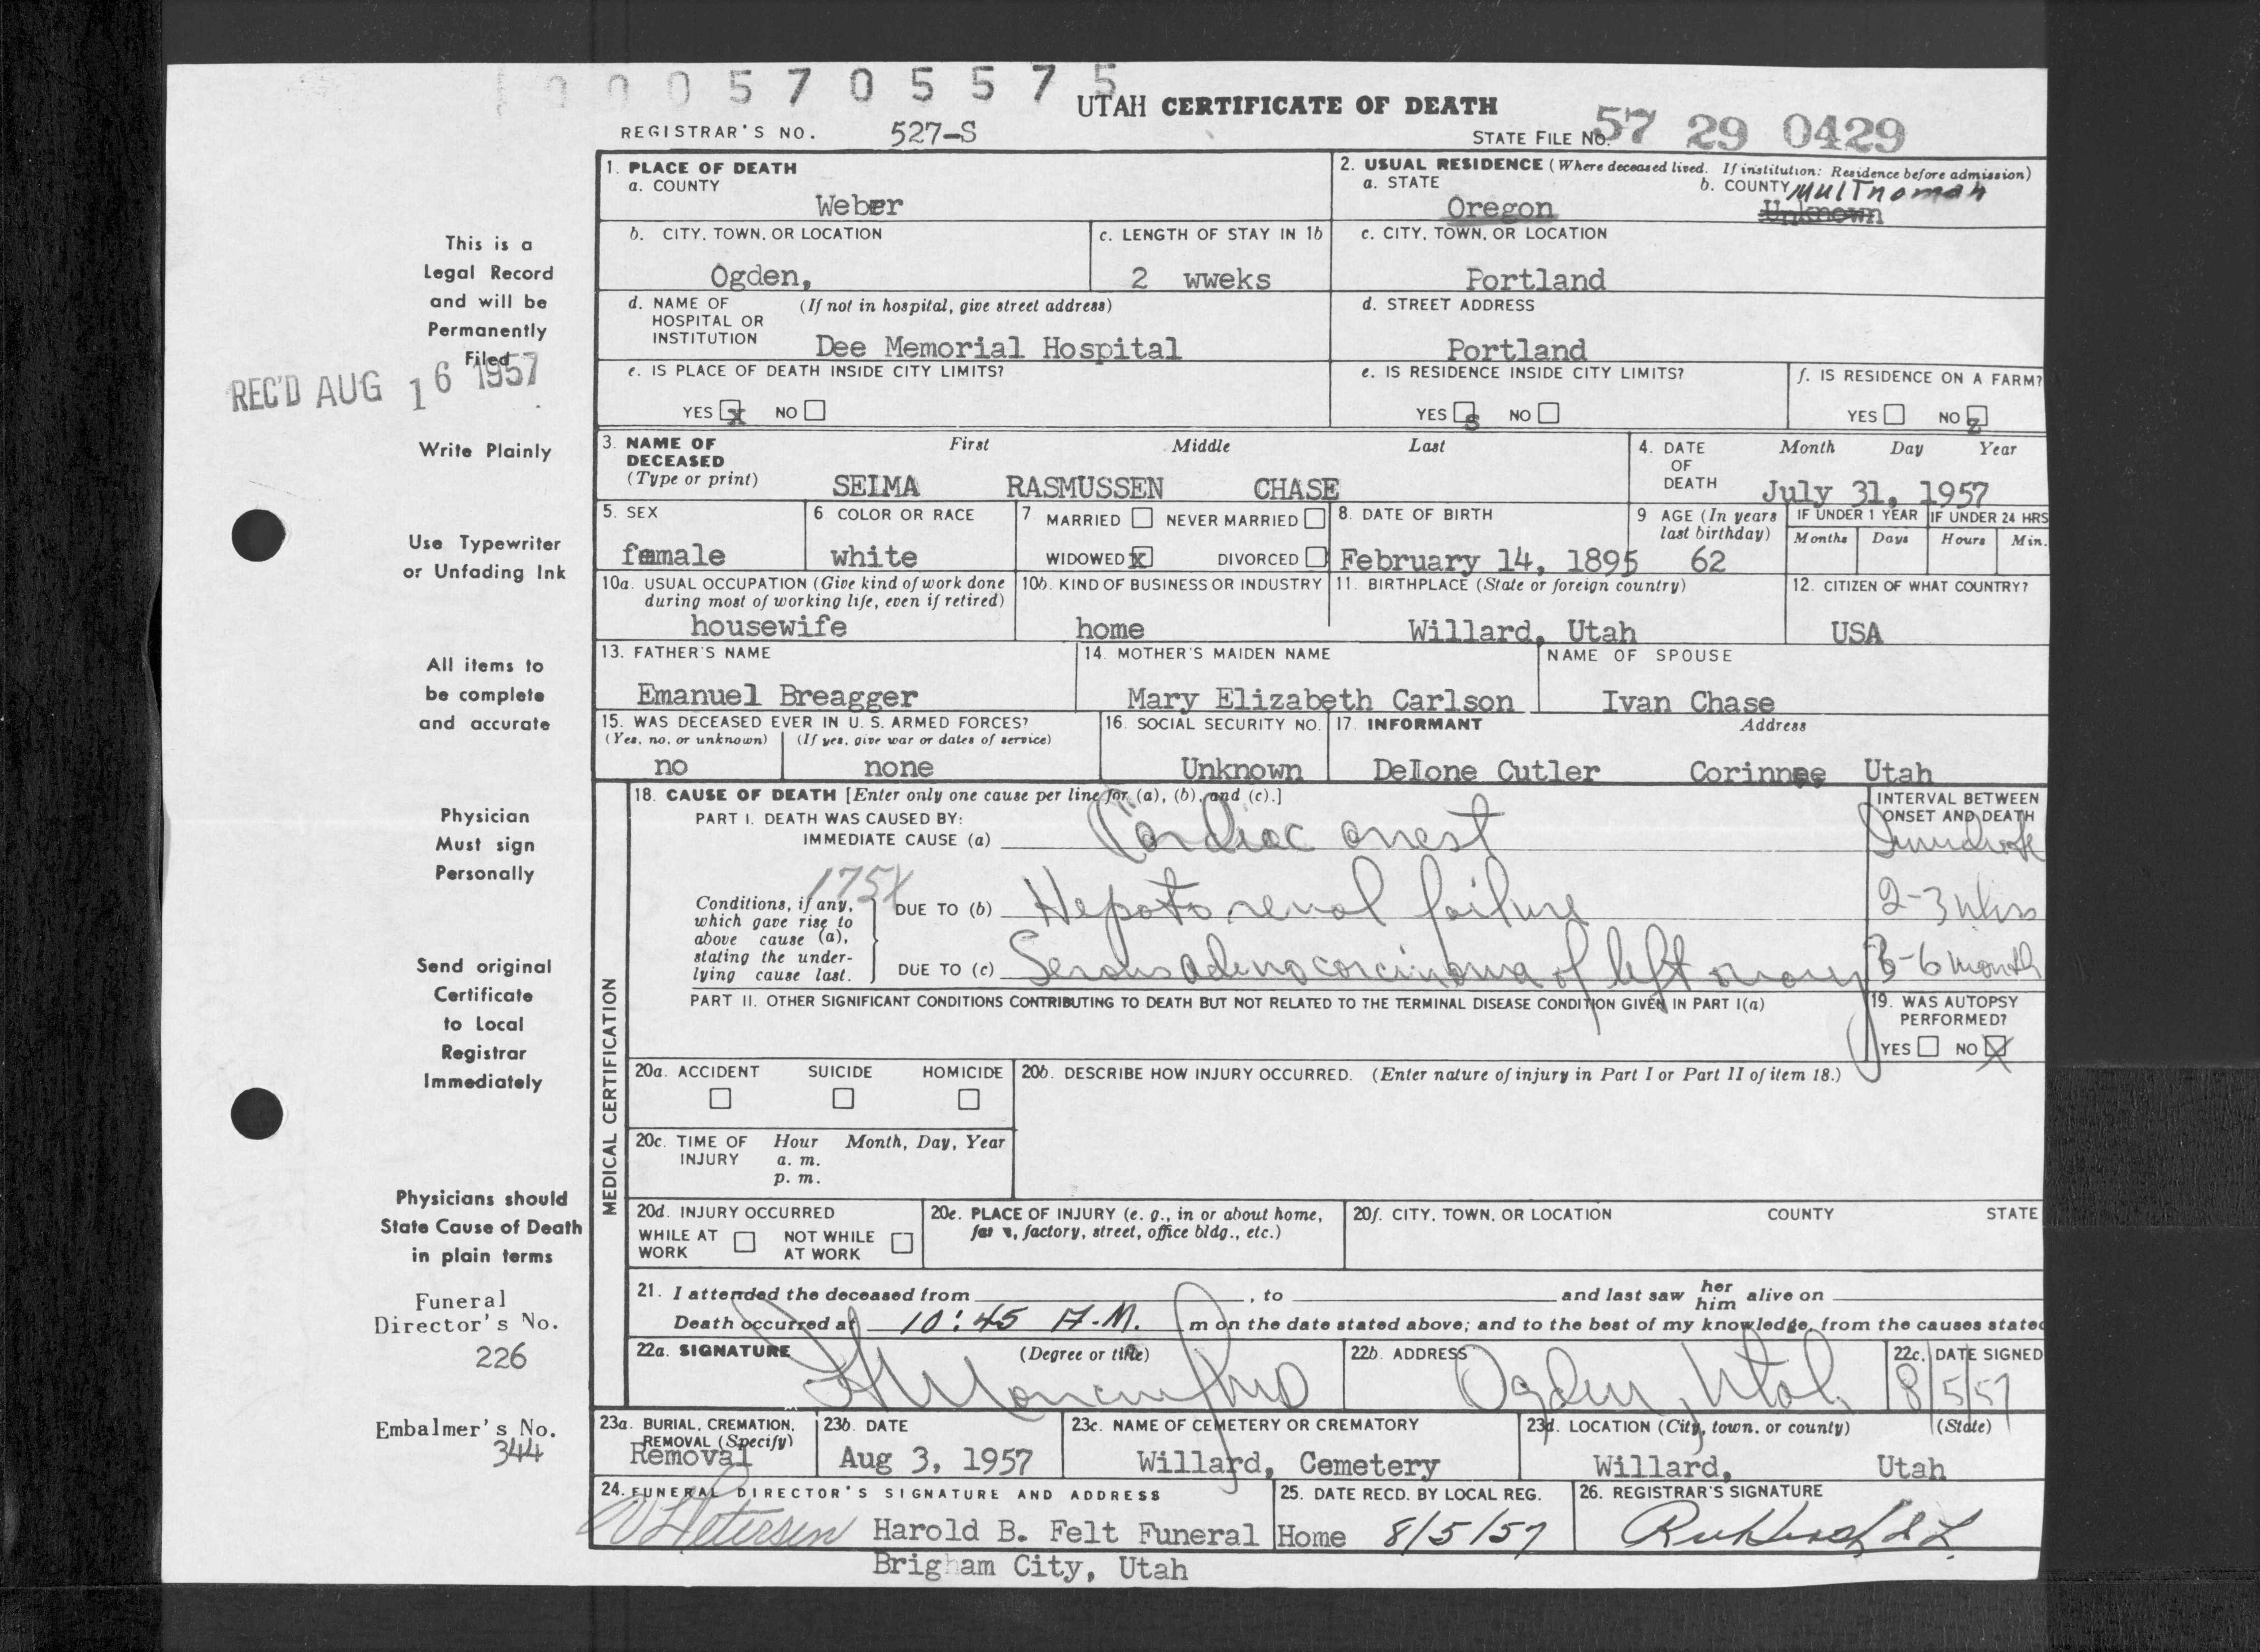 0 0 0 5 7 0 5 5 7 5
UTAH CERTIFICATE OF DEATH
REGISTRAR'S NO. 527-S
STATE FILE NO. 57 29 0429
1. PLACE OF DEATH
a. COUNTY
Weber
2. USUAL RESIDENCE (Where deceased lived. If institution: Residence before admission)
a. STATE
Oregon
b. COUNTY Multnomah
Unknown
b. CITY, TOWN, OR LOCATION
Ogden,
c. LENGTH OF STAY IN 1b
2 wweks
c. CITY, TOWN, OR LOCATION
Portland
d. NAME OF (If not in hospital, give street address)
HOSPITAL OR
INSTITUTION
Dee Memorial Hospital
d. STREET ADDRESS
Portland
e. IS PLACE OF DEATH INSIDE CITY LIMITS?
YES x NO
e. IS RESIDENCE INSIDE CITY LIMITS?
YES s NO
f. IS RESIDENCE ON A FARM?
YES NO z
3. NAME OF DECEASED
(Type or print)
First Middle Last
SEIMA RASMUSSEN CHASE
4. DATE OF DEATH
Month Day Year
July 31, 1957
5. SEX
female
6 COLOR OR RACE
white
7 MARRIED NEVER MARRIED
WIDOWED x DIVORCED
8. DATE OF BIRTH
February 14, 1895
9 AGE (In years last birthday)
62
IF UNDER 1 YEAR
Months Days
IF UNDER 24 HRS
Hours Min.
10a. USUAL OCCUPATION (Give kind of work done during most of working life, even if retired)
housewife
10b. KIND OF BUSINESS OR INDUSTRY
home
11. BIRTHPLACE (State or foreign country)
Willard, Utah
12. CITIZEN OF WHAT COUNTRY?
USA
13. FATHER'S NAME
Emanuel Breagger
14. MOTHER'S MAIDEN NAME
Mary Elizabeth Carlson
NAME OF SPOUSE
Ivan Chase
15. WAS DECEASED EVER IN U. S. ARMED FORCES?
(Yes, no, or unknown) (If yes, give war or dates of service)
no none
16. SOCIAL SECURITY NO.
Unknown
17. INFORMANT Address
DeIone Cutler Corinnee Utah
MEDICAL CERTIFICATION
18. CAUSE OF DEATH [Enter only one cause per line for (a), (b), and (c).]
PART I. DEATH WAS CAUSED BY:
IMMEDIATE CAUSE (a) Cardiac arrest
INTERVAL BETWEEN ONSET AND DEATH
Immediate
175X
Conditions, if any, which gave rise to above cause (a), stating the underlying cause last.
DUE TO (b) Hepato renal failure
2-3 wks
DUE TO (c) Serous adenocarcinoma of left ovary
3-6 month
PART II. OTHER SIGNIFICANT CONDITIONS CONTRIBUTING TO DEATH BUT NOT RELATED TO THE TERMINAL DISEASE CONDITION GIVEN IN PART I(a)
19. WAS AUTOPSY PERFORMED?
YES NO X
20a. ACCIDENT SUICIDE HOMICIDE
20b. DESCRIBE HOW INJURY OCCURRED. (Enter nature of injury in Part I or Part II of item 18.)
20c. TIME OF INJURY
Hour Month, Day, Year
a. m.
p. m.
20d. INJURY OCCURRED
WHILE AT WORK NOT WHILE AT WORK
20e. PLACE OF INJURY (e. g., in or about home, factory, street, office bldg., etc.)
20f. CITY, TOWN, OR LOCATION COUNTY STATE
21. I attended the deceased from , to and last saw her him alive on
Death occurred at 10:45 A.M. m on the date stated above; and to the best of my knowledge, from the causes stated
22a. SIGNATURE (Degree or title)
22b. ADDRESS
Ogden, Utah
22c. DATE SIGNED
8/5/57
23a. BURIAL, CREMATION, REMOVAL (Specify)
Removal
23b. DATE
Aug 3, 1957
23c. NAME OF CEMETERY OR CREMATORY
Willard, Cemetery
23d. LOCATION (City, town, or county) (State)
Willard, Utah
24. FUNERAL DIRECTOR'S SIGNATURE AND ADDRESS
Petersen Harold B. Felt Funeral Home
Brigham City, Utah
25. DATE RECD. BY LOCAL REG.
8/5/57
26. REGISTRAR'S SIGNATURE
This is a
Legal Record
and will be
Permanently
Filed
REC'D AUG 16 1957
Write Plainly
Use Typewriter
or Unfading Ink
All items to
be complete
and accurate
Physician
Must sign
Personally
Send original
Certificate
to Local
Registrar
Immediately
Physicians should
State Cause of Death
in plain terms
Funeral
Director's No.
226
Embalmer's No.
344